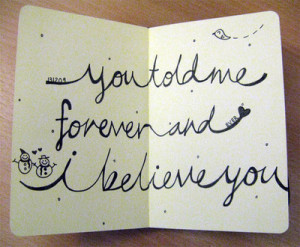 you told me
forever and
EVER
i believe you